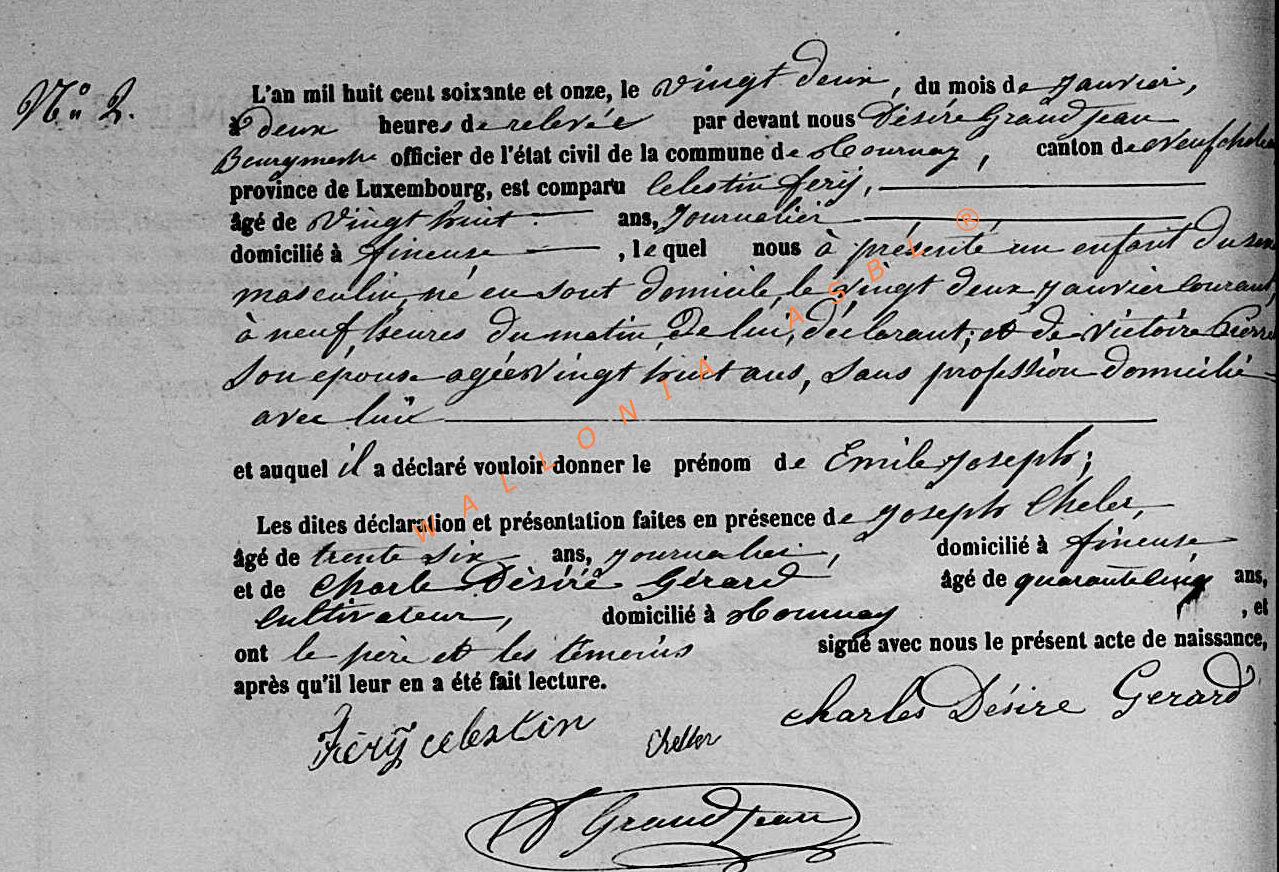 No 2.
L'an mil huit cent soixante et onze, le vingt deux, du mois de Janvier,
à deux heures de relevée par devant nous Désiré Grandjean
Bourgmestre officier de l'état civil de la commune de Tournay, canton de Neufchateau
province de Luxembourg, est comparu Celestin Ferÿ,
âgé de vingt huit ans, Journalier
domicilié à fineuse, lequel nous à présenté un enfant du sexe
masculin, né en sont domicile, le vingt deux Janvier Courant,
à neuf heures du matin, De lui, déclarant, et de Victoire Pierre
Son epouse agée vingt huit ans, sans profession domicilié
avec lui
et auquel il a déclaré vouloir donner le prénom de Emile Joseph;
Les dites déclaration et présentation faites en présence de Joseph Cheler,
âgé de trente six ans, Journalier, domicilié à fineuse
et de Charle Désiré Gérard âgé de quarante cinq ans,
Cultivateur, domicilié à Tournay, et
ont le père et les témoins signé avec nous le présent acte de naissance,
après qu'il leur en a été fait lecture.
Férÿ celestin Cheller Charles Désire Gerard
D Grandjean
WALLONIA ASBL ®